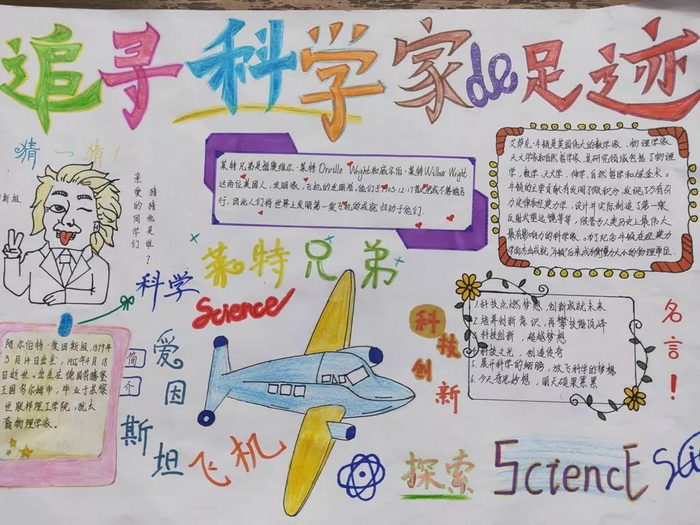 追寻科学家de足迹
猜一猜！
亲爱的同学们
猜猜他是谁？
斯坦
莱特兄弟是指奥维尔·莱特Orville Wright和威尔伯·莱特Wilbur Wright
这两位美国人，发明家，飞机的发明者，他们于1903.12.17首次完成
行，因此人们将世界上发明第一架飞机的成就归功于他们.
艾萨克·牛顿是英国伟大的数学家、物理学家、
天文学家和自然哲学家，其研究领域包括了物理
学，数学，天文学，神学，自然哲学和炼金术。
牛顿的主要贡献有发明了微积分，发现了万有引
力定律和经典力学，设计并实际制造了第一架
反射式望远镜等等，被誉为人类历史上最伟大
最有影响力的科学家。为了纪念牛顿在经典力
学方面杰出成就，"牛顿"后来成为衡量力大小的物理单位.
科学
莱特兄弟
Science
阿尔伯特·爱因斯坦，1879年
3月14日出生，1955年4月18
日逝世。出生在德国符腾堡
王国乌尔姆市，毕业于苏黎
世联邦理工学院，犹太
裔物理学家。
简介
爱因斯坦
飞机
科技创新
1.科技点燃梦想，创新成就未来
2.培养创新意识，再攀技能顶峰
3.科技创新，超越梦想
4.科技之光，创造传奇
5.展开科学的翅膀，放飞科学的梦想
6.今天奇思妙想，明天硕果累累
名言！
探索
SciencE
Sci